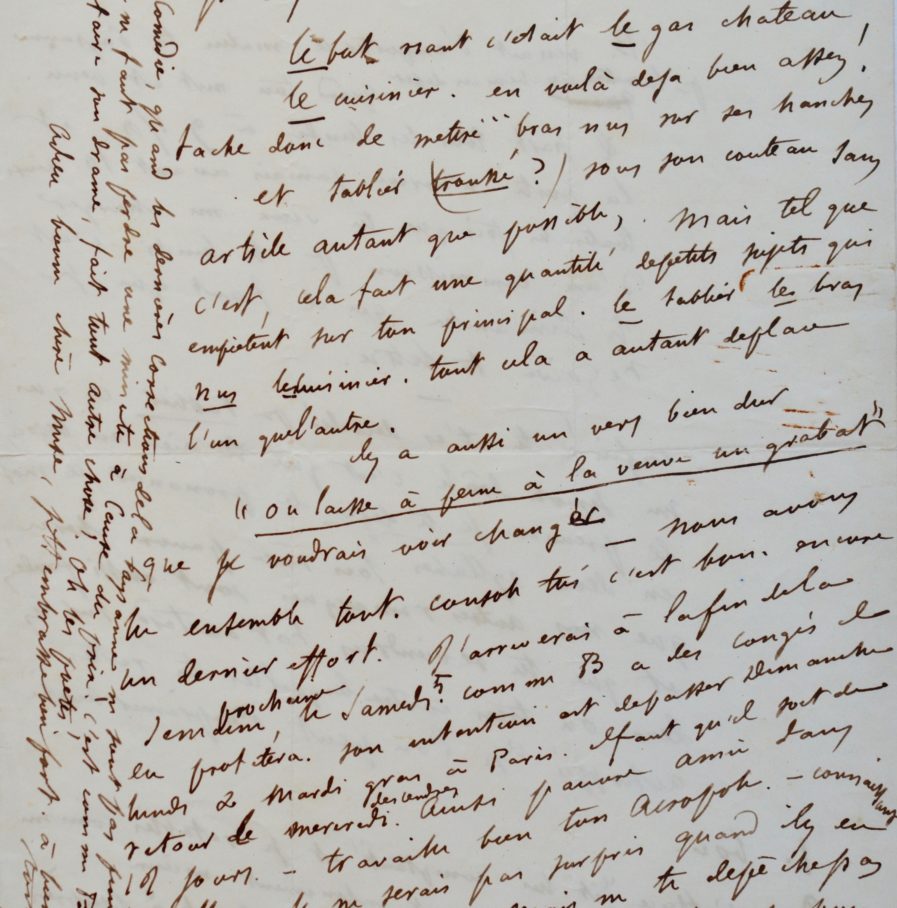 le but riant c'était le gas chateau
le cuisinier. en voilà deja bien assez!
tache donc de mettre bras nus sur ses hanches
et tablier (troussé?) sous son couteau sans
article autant que possible,. Mais tel que
c'est, cela fait une quantité depetits sujets qui
empêtent sur ton principal. le tablier les bras
nus le cuisinier. tout cela a autant deplace
l'un quel'autre.
il y a aussi un vers bien dur
« on laisse à peine à la veuve un grabat »
que je voudrais voir changer — nous avons
lu ensemble tout. console toi c'est bon. encore
un dernier effort. J'arriverai à lafin dela
semaine prochaine, le samedi 5. comme B a des congés il
en profitera. son intention est depasser Dimanche
lundi & Mardi gras à Paris. Il faut qu'il soit de
retour le mercredi des cendres. Ainsi pauvre amie dans
18 jours. — travaille bien ton Acropole. —
ne serais pas surpris quand il y en
ne te depêche pas
Comédie, quand les dernières corrections dela Paysanne ne sont pas
ne faut pas perdre une minute à cause du prix. c'est comme
faire son drame, fait tout autre chose, Oh les poetes,
Adieu bonne chère Muse, je t'embrasse bien fort à